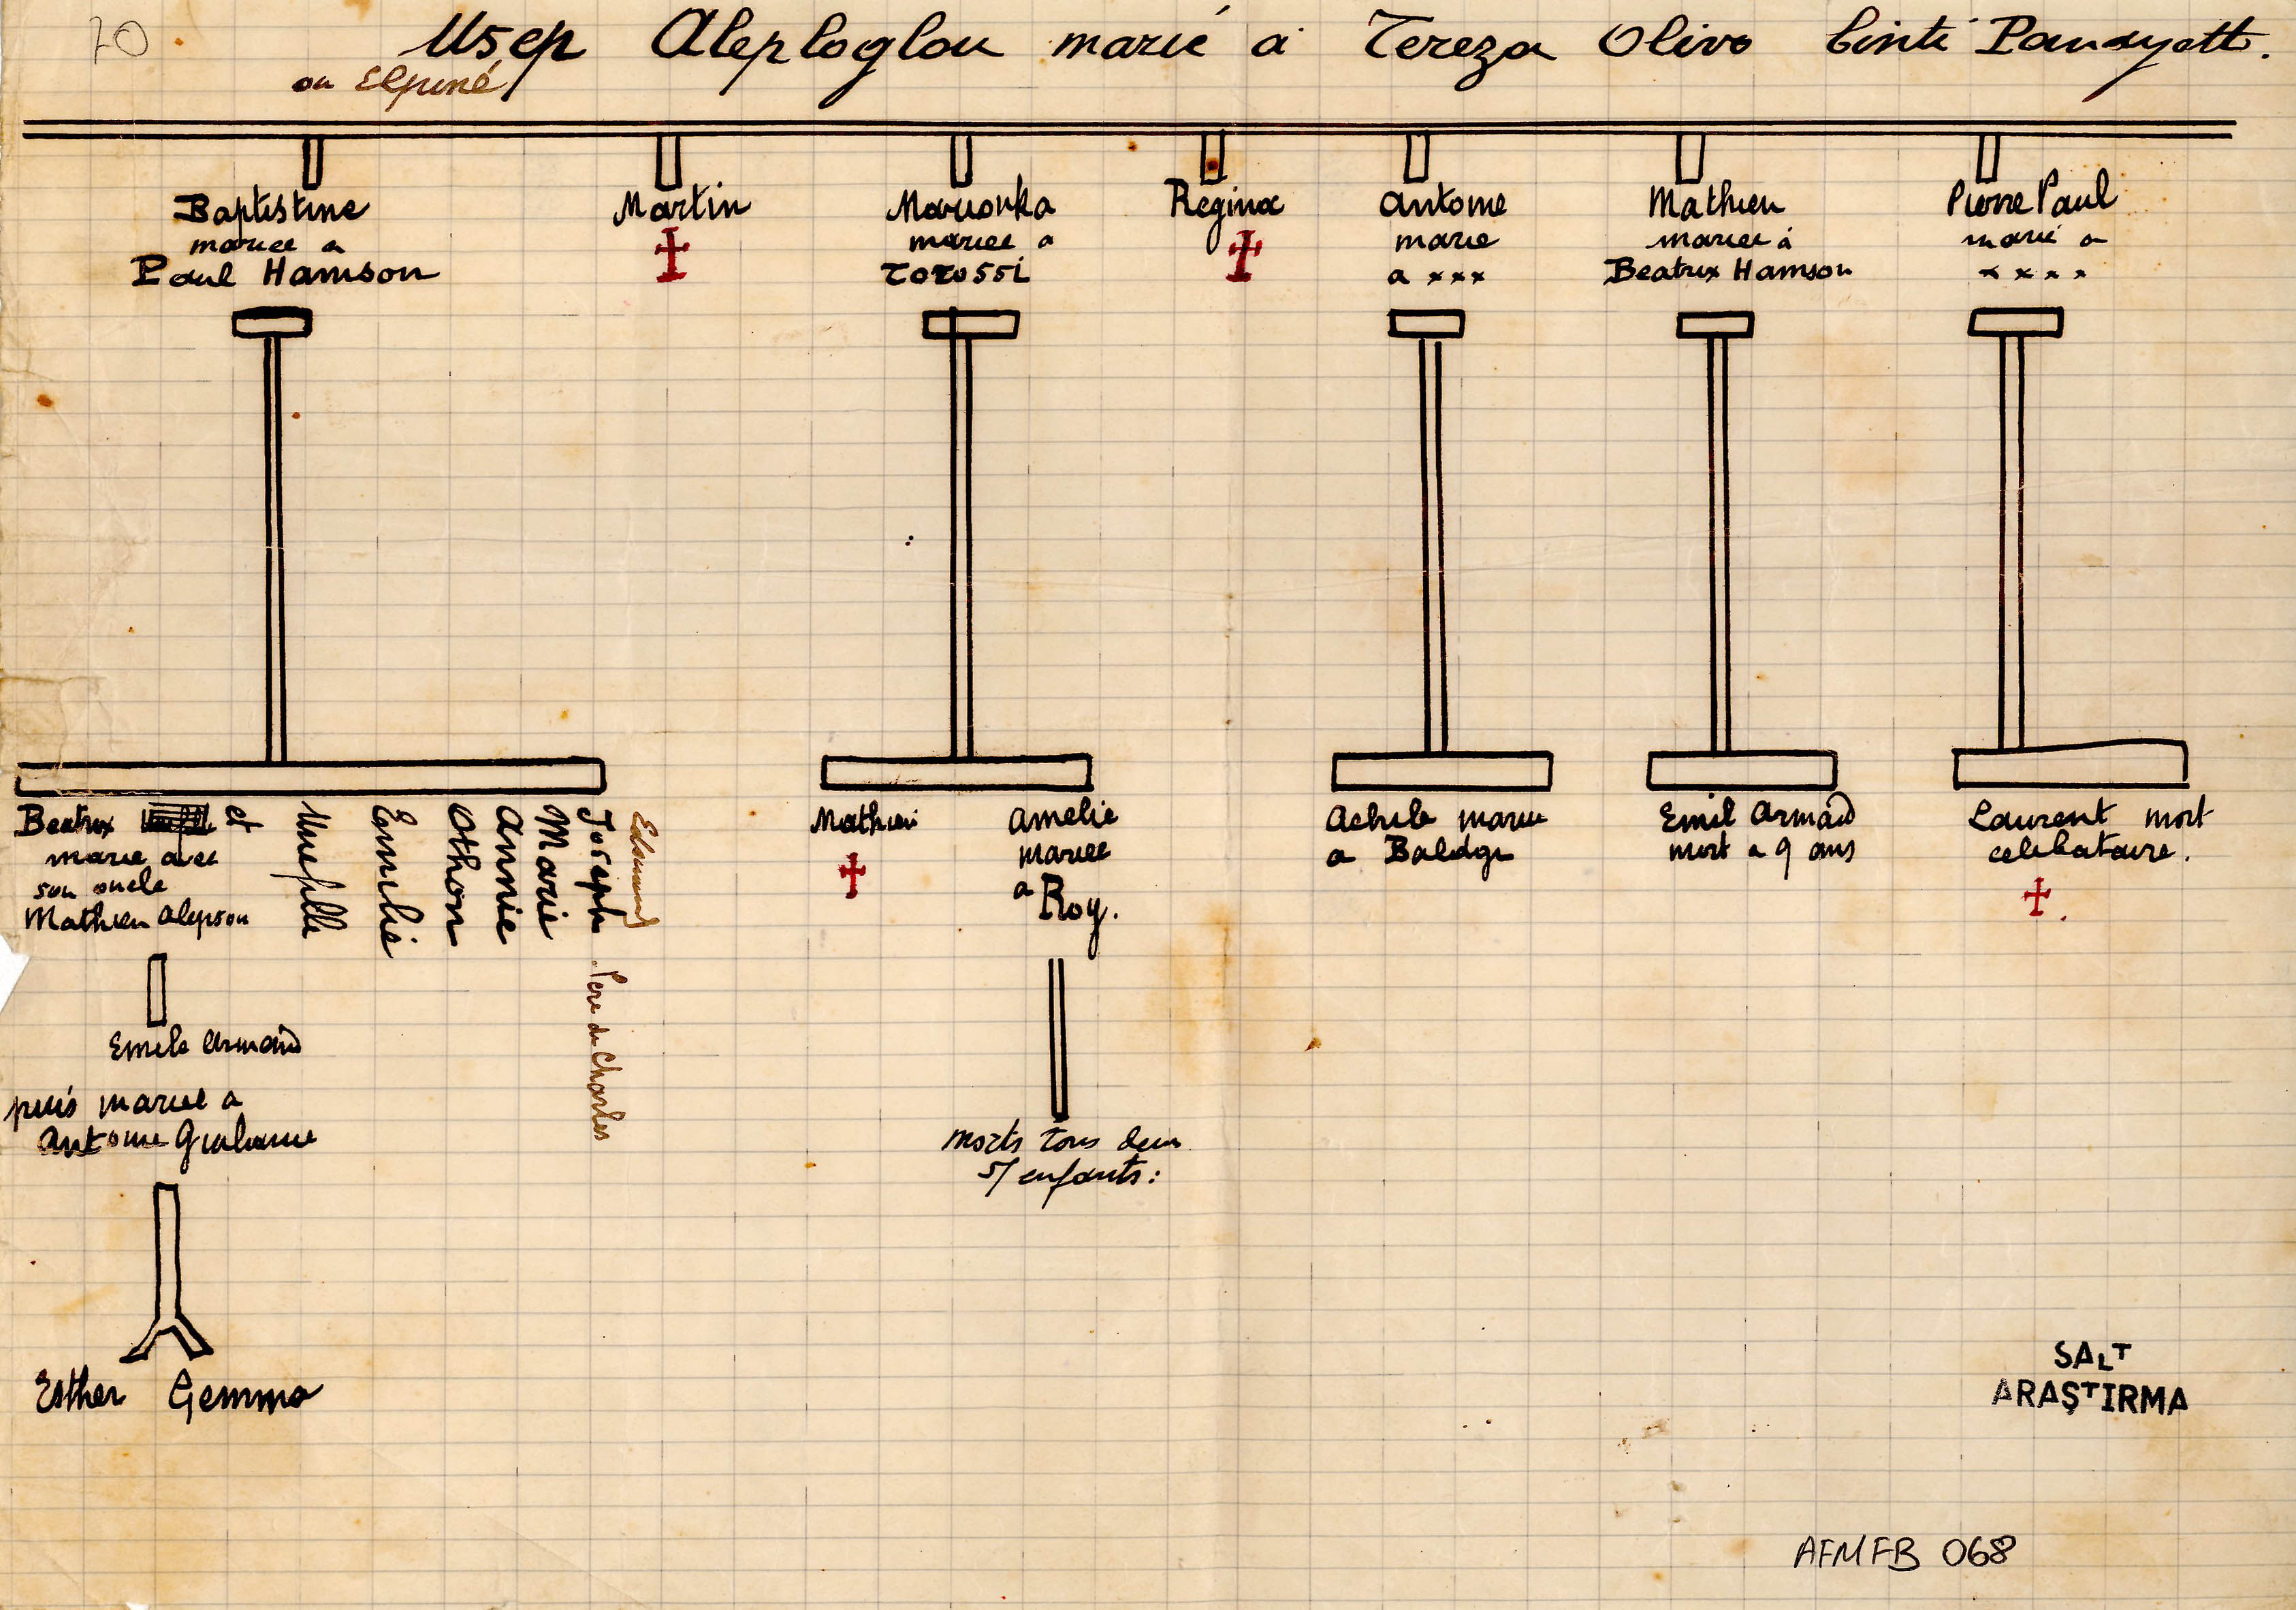 70
Usep Aleploglou marié a Tereza Olivo binti Panayotti.
ou Elpiné
Baptistine
mariee a
Paul Hamson
Martin
Mariouka
mariee a
Torossi
Regina
Antoine
marie
a xxx
Mathieu
mariee à
Beatrix Hamson
Pierre Paul
marié a
xxxx
Beatrix et
marie avec
son oncle
Mathieu Alepson
Une fille
Emilie
Othon
Annie
Marie
Joseph Pere de Charles
Edmond
Mathieu
Amelie
mariee
a Roy.
Achile marie
a
Emil Armand
mort a 9 ans
Laurent mort
celibataire.
Emile Armand
puis mariee a
Antoine
morts tous deux
s/ enfants:
Esther Gemma
SALT
ARAŞTIRMA
AFMFB 068